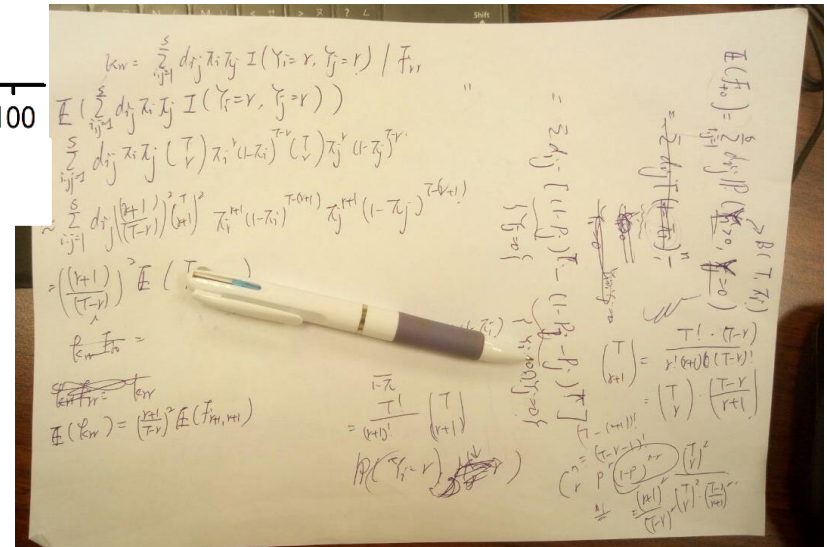 100
Shift
k_{rr} = \sum_{i,j=1}^{S} d_{ij} \pi_i \pi_j I(Y_i=r, Y_j=r) / F_{rr}
𝔼(\sum_{i,j=1}^{S} d_{ij} \pi_i \pi_j I(Y_i=r, Y_j=r))
\sum_{i,j=1}^{S} d_{ij} \pi_i \pi_j \binom{T}{r} \pi_i^r (1-\pi_i)^{T-r} \binom{T}{r} \pi_j^r (1-\pi_j)^{T-r}
≈ \sum_{i,j=1}^{S} d_{ij} (\frac{(r+1)}{(T-r)})^2 \binom{T}{r+1}^2 \pi_i^{r+1} (1-\pi_i)^{T-(r+1)} \pi_j^{r+1} (1-\pi_j)^{T-(r+1)}
= (\frac{(r+1)}{(T-r)})^2 𝔼(
𝔼(k_{rr}) = (\frac{r+1}{T-r})^2 𝔼(F_{r+1,r+1})
= \frac{T!}{(r+1)!} \binom{T}{r+1}
ℙ(Y_i=r)
𝔼(F_{+0}) = \sum_{i,j=1}^{S} d_{ij} ℙ(Y_i>0, Y_j=0)
B(T, \pi_i)
= \sum d_{ij} [(1-P_j)^T - (1-P_i-P_j)^T]
{Y_j=0}
{Y_i=0 ∩ Y_j=0}
\binom{T}{r+1} = \frac{T! · (T-r)}{r!(r+1)(T-r)!}
= \binom{T}{r} · (\frac{T-r}{r+1})
(T-(r+1))!
= (T-r-1)!
C_r^n P^r (1-P)^{n-r}
= \frac{(r+1)^2}{(T-r)^2} \binom{T}{r}^2 · (\frac{T-r}{r+1})^2